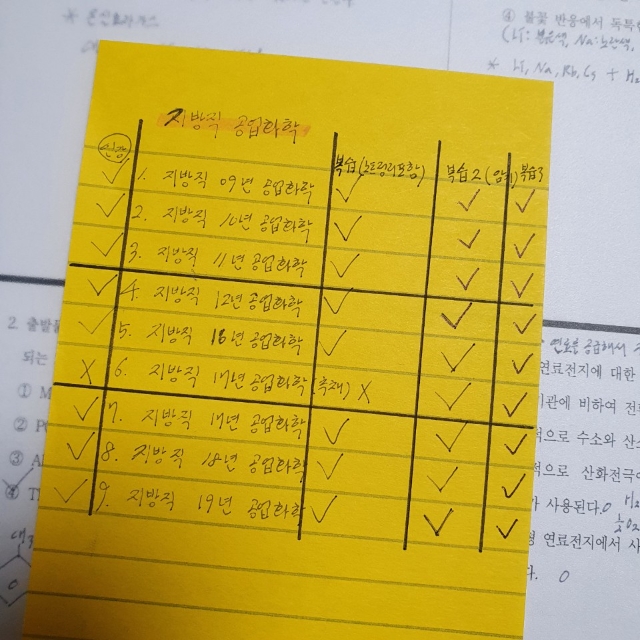 * 온실효과가스
④ 불꽃 반응에서 독특한
(Li: 붉은색, Na: 노란색,
* Li, Na, Rb, Cs + H₂
지방직 공업화학
복습(노트정리포함) 복습2 (암기) 복습3
✓ 1. 지방직 09년 공업화학 ✓ ✓ ✓
✓ 2. 지방직 10년 공업화학 ✓ ✓ ✓
✓ 3. 지방직 11년 공업화학 ✓ ✓ ✓
✓ 4. 지방직 12년 공업화학 ✓ ✓ ✓
✓ 5. 지방직 16년 공업화학 ✓ ✓ ✓
X 6. 지방직 17년 공업화학 X ✓ ✓
✓ 7. 지방직 17년 공업화학 ✓ ✓ ✓
✓ 8. 지방직 18년 공업화학 ✓ ✓ ✓
✓ 9. 지방직 19년 공업화학 ✓ ✓ ✓
2. 출발물
되는
① M
② P
③ A
④ T
연료를 공급해서
연료전지에 대한
기관에 비하여 전
적으로 수소와 산소
적으로 산화전극에
가 사용된다. O H₂
½O₂
형 연료전지에서 사
다. O